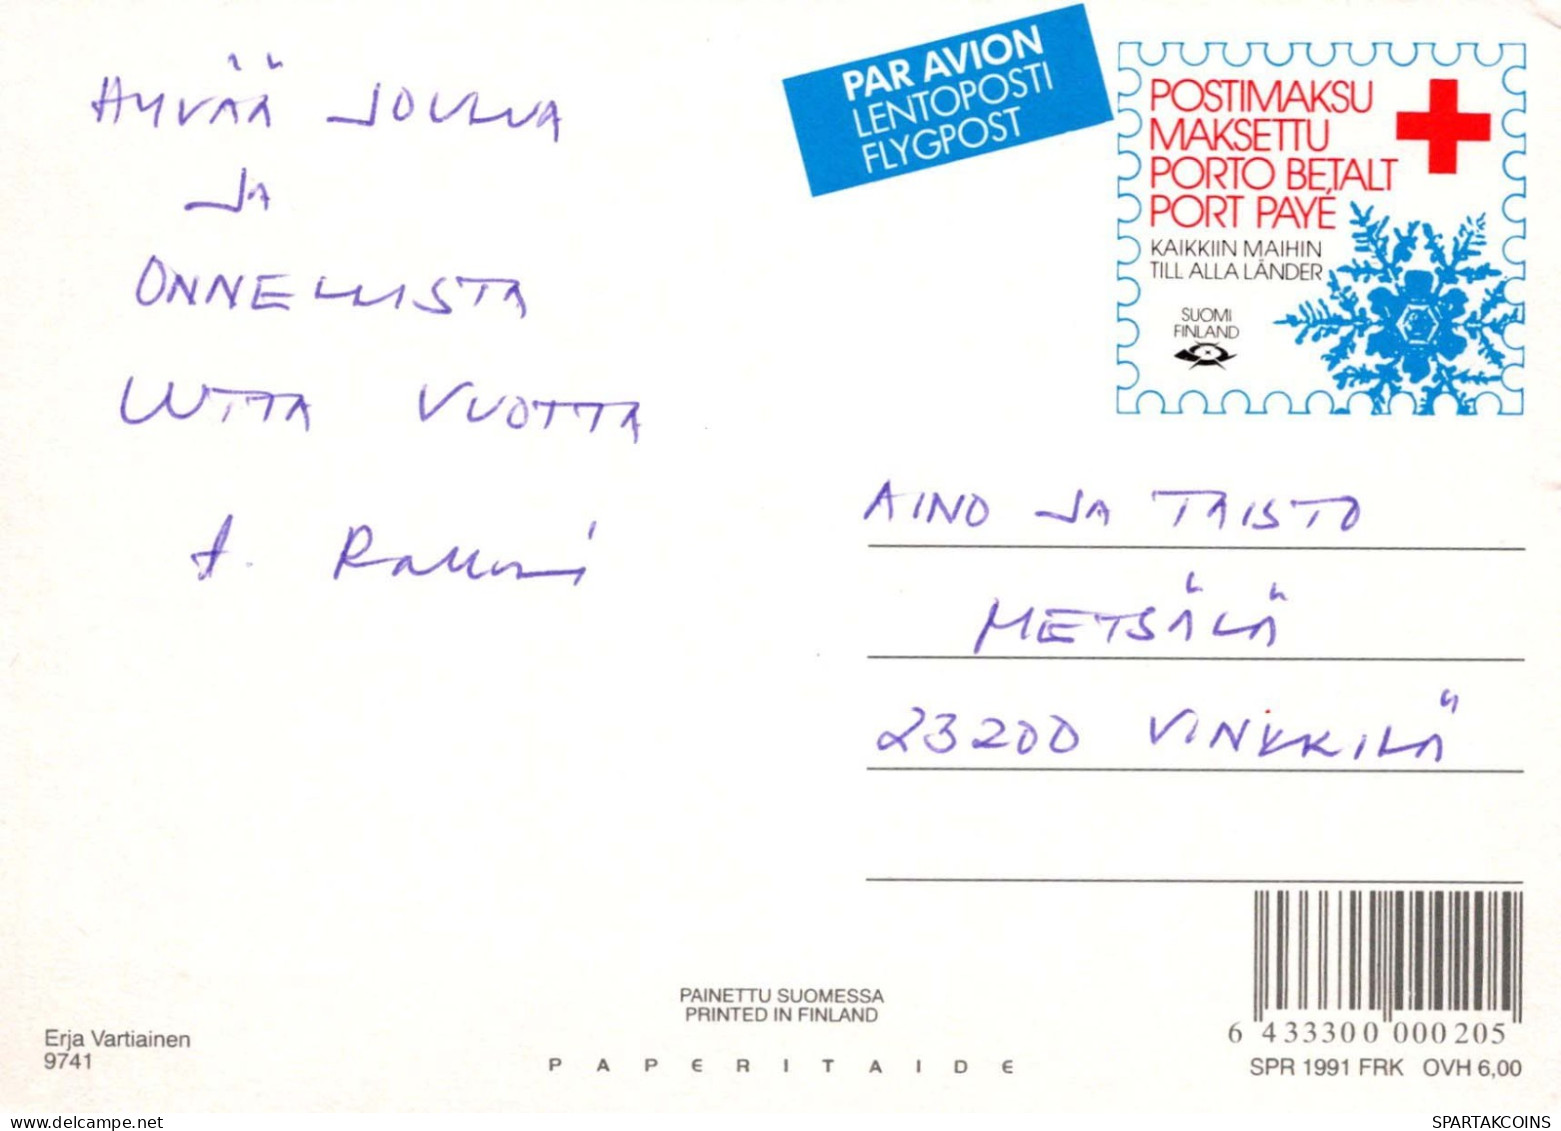 HYVÄÄ JOULUA
JA
ONNELLISTA
UUTTA VUOTTA
PAR AVION
LENTOPOSTI
FLYGPOST
POSTIMAKSU
MAKSETTU
PORTO BETALT
PORT PAYÉ
KAIKKIIN MAIHIN
TILL ALLA LÄNDER
SUOMI
FINLAND
AINO JA TAISTO
METSÄLÄ
23200 VINKKILÄ
Erja Vartiainen
9741
PAINETTU SUOMESSA
PRINTED IN FINLAND
PAPERITAIDE
6 433300 000205
SPR 1991 FRK OVH 6,00
SPARTAKCOINS
www.delcampe.net